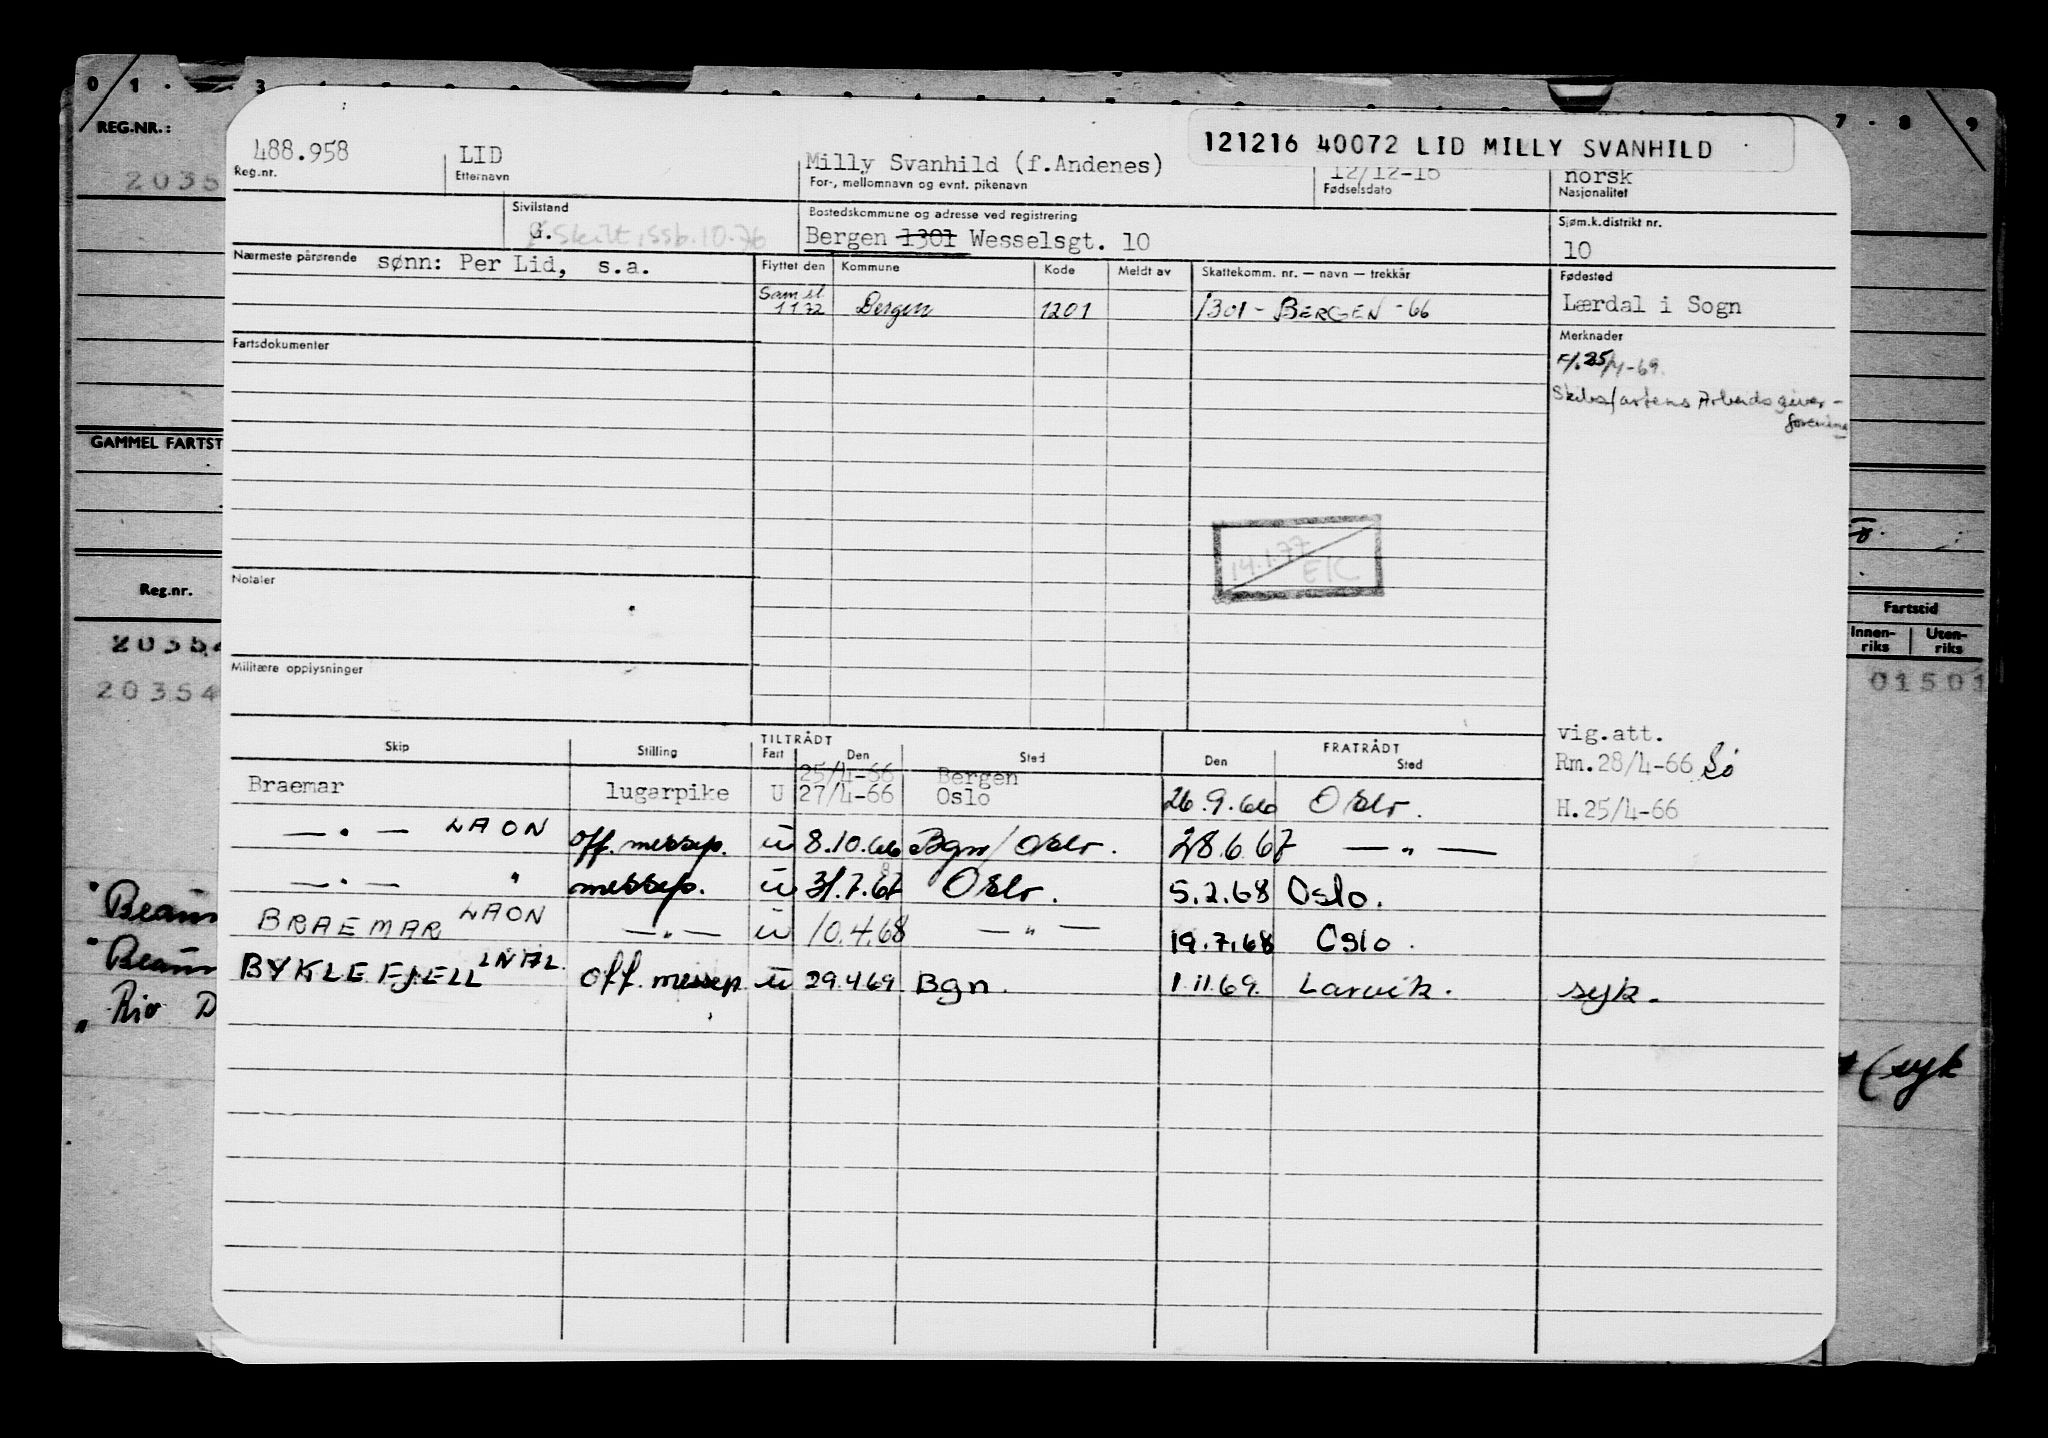 0 1 3 7 8 9
REG.NR.:
121216 40072 LID MILLY SVANHILD
488.958 LID Milly Svanhild (f.Andenes) 12/12-16 norsk
Reg.nr. Etternavn For-, mellomnavn og evnt. pikenavn Fødselsdato Nasjonalitet
2035
Sivilstand Bostedskommune og adresse ved registrering Sjøm.k.distrikt nr.
G. Skilt, ssb.10.76 Bergen 1301 Wesselsgt. 10 10
Nærmeste pårørende sønn: Per Lid, s.a. Flyttet den Kommune Kode Meldt av Skattekomm. nr. — navn — trekkår Fødested
Sam.sl. 1 1 72 Bergen 1201 1301 - BERGEN -66 Lærdal i Sogn
Fartsdokumenter Merknader
F/. 25/4-69.
Skibsfartens Arbeidsgiver-
forening
GAMMEL FARTST
14.1.77 EK
Notater
Reg.nr. Fartstid
Innen-riks Uten-riks
2035
Militære opplysninger
20354 01501
vig.att.
Skip Stilling TILTRÅDT Fart Den Sted FRATRÅDT Den Sted Rm.28/4-66 Sø
25/4-66 Bergen
Braemar lugarpike U 27/4-66 Oslo 26.9.66 Oslo. H.25/4-66
— " — LAON off. messep. u 8.10.66 Bgn/Oslo. 28.6.67 — " —
— " — " messep. u 31.7.67 Oslo. 5.2.68 Oslo.
BRAEMAR LAON — " — u 10.4.68 — " — 19.7.68 Oslo.
BYKLEFJELL off. messep u 29.4.69 Bgn. 1.11.69. Larvik. syk.
" Rio D
(syk